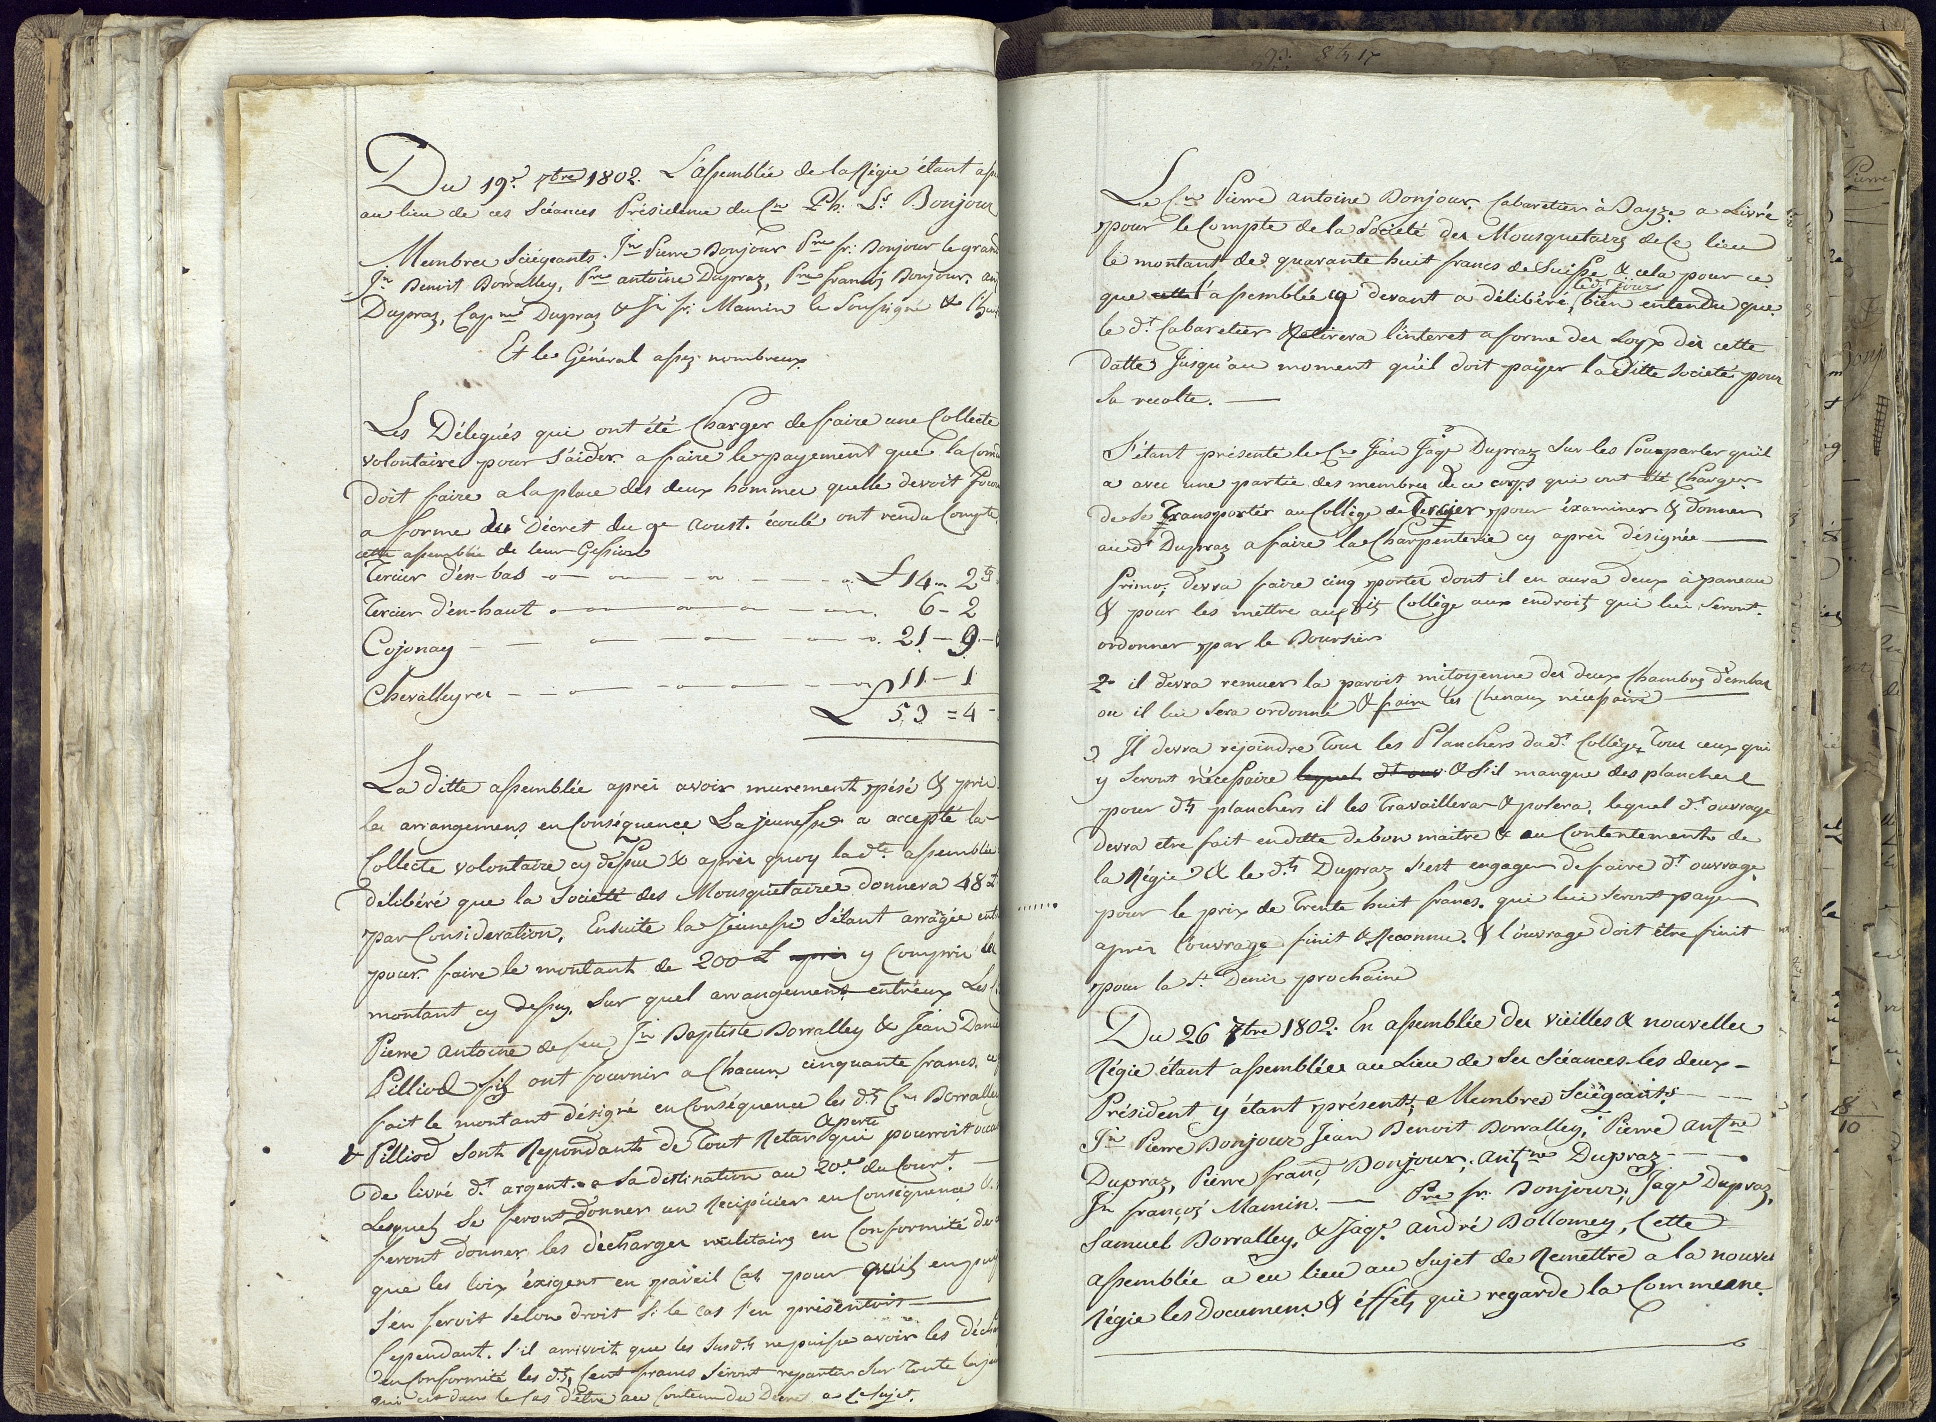 Du 19e. 7bre 1802. L'assemblée de la Régie étant
au lieu de ces Scéances Présidence du Cn Ph. Ls Bonjour
Membres Sciégeants. Jn Pierre Bonjour Pre fr: Bonjour le grand
Jn Benoit Borralley, Pre antoine Dupraz, Pre françs Bonjour,
Dupraz, Dupraz & Jn fr: Mamin le Soussigné &
Et le Général assez nombreux.
Les Délegués qui ont été Charger de faire une Collecte
volontaire pour s'aider a faire le payement que la
doit faire a la place des deux hommes quelle devoit
a forme du Décret du 9e aoust. écoulé ont rendu Compte
cette assemblée de leur Gession
Tercier d'en-bas £ 14 - 2
Tercier d'en-haut 6 - 2
Cojonay 21 - 9 -
Chevalleyres 11 - 1
£ 53 = 4 -
La ditte assemblée aprés avoir murement pésé & pris
les arrangemens en Conséquence La jeunesse a accepté la
Collecte volontaire cy dessus & après quoy lade assemblée
délibéré que la Societé des Mousquetaires donnera 48 £
par Consideration, Ensuite la Jeunesse s'étant arragée
pour faire le montant de 200 £ y Compris les
montant cy dessus. Sur quel arrangement entreux Les
Pierre Antoine de feu Jn Baptiste Borralley & Jean
Pilliod fils ont fournir a Chacun cinquante francs,
fait le montant désigné en Conséquence les dts Cns Borralley
& Pilliod sont Repondants de Tout Retar & perte qui pourroit
de livré dt argent a Sa destination au 20e du Court.
Lesquels Se feront donner un Recipicier en Conséquence &
feront donner les décharges militairs en Conformité des
que les loix éxigent en pareil Cas pour qu'ils en
s'en servir selon droit Si le cas s'en présentoit
Cependant. S'il arrivoit que les Susdts ne puisse avoir les
en Conformité les dts Cent francs Seront repartir Sur Toute la
qui est dans le Cas d'être au Contenu du Décret a Ce Sujet.
Le Cn Pierre antoine Bonjour Cabaretier à a Livré
pour le Compte de la Societé des Mousquetairs de Ce lieu
le montant de quarante huit francs de Suisse & cela pour ce
que l'assemblée cy devant a délibéré, ledt jour bien entendu que
le dt Cabaretier Retirera l'interet a forme des Loyx dès cette
datte Jusqu'au moment qu'il doit payer la Ditte Societé pour
Sa recolte.
S'étant présenté le Cn Jean Jaqe Dupraz Sur les Pourparler qu'il
a avec une partie des membres de ce corps qui ont été Charger
de Ses Transporter au Collège de Tercier pour éxaminer & donner
au dt Dupraz a faire la Charpenterie cy après désignée
Primo, Devra faire cinq portes dont il en aura deux à paneau
& pour les mettre aux dits Collège aux endroits qui lui Seront
ordonner par le Boursier
2o il devra remuer la parois mitoyenne des deux Chambres d'embas
ou il lui Sera ordonné & faire les Chenaux nécessaire
3 Il devra rejoindre Tous les Planchers dudt Collège, Tous ceux qui
y Seront nécessaire & s'il manque des planches
pour dts planchers il les Travaillera & posera, lequel dt ouvrage
devra etre fait en ditte de bon maitre & au Contentement de
la Régie & le dts Dupraz s'est engager de faire dt ouvrage
pour le prix de Trente huit francs. qui lui Seront payer
après l'ouvrage finit & Reconnu. & l'ouvrage doit être finit
pour la St Denis prochaine
Du 26 7bre 1802. En assemblée des vieilles & nouvelles
Régie étant assemblées au Lieu de Ses Scéances les deux
Président y étant présents, Membres Sciégeants
Jn Pierre Bonjour Jean Benoit Borralley, Pierre antne
Dupraz, Pierre franç Bonjour, antne Dupraz
Jn françs Mamin. Pre fr. Bonjour, Jaqe Dupraz,
Samuel Borralley, & Jaqe. andré Dollomey, Cette
assemblée a eu lieu au Sujet de Remettre a la nouvel
Régie les Documens & éffets qui regarde la Commune.